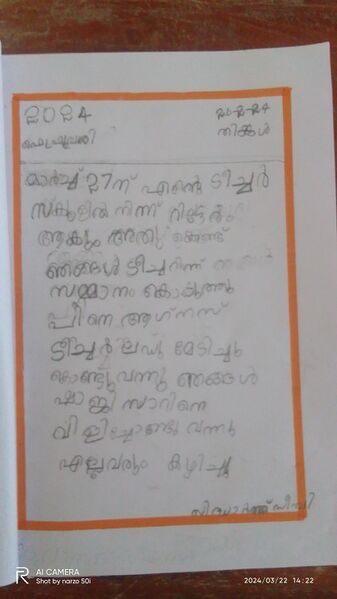 2024
ഫെബ്രുവരി
തിങ്കൾ
മാർച്ച് 27ന് എന്റെ ടീച്ചർ
സ്കൂളിൽ നിന്ന് റിട്ടേർഡ്
ആകും അതു കൊണ്ട്
ഞങ്ങൾ ടീച്ചറിന്ന്
സമ്മാനം കൊടുത്തു
പീനെ ആഗ്നസ്
ടീച്ചർ ലഡു മേടിച്ചു
കൊണ്ടുവന്നു ഞങ്ങൾ
ഷാജി സാറിനെ
വിളിച്ചോണ്ടു വന്നു
എല്ലവരും കഴിച്ചു
AI CAMERA
Shot by narzo 50i
2024/03/22 14:22